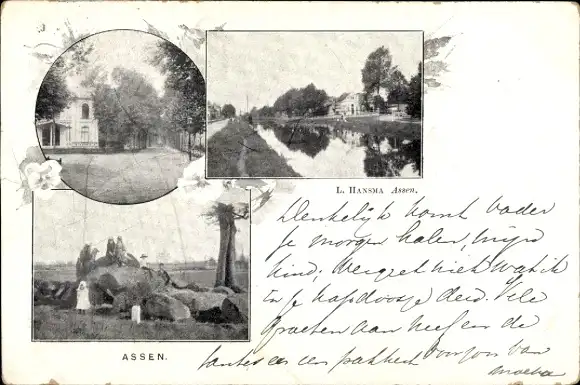 L. HANSMA Assen.
Denkelijk komt vader
je morgen halen, mijn
kind; Vergeet niet wat ik
in je hapdoosje deed. Vele
groeten aan neef en de
tantes en een pakkerd voor jou van
moeder
ASSEN.